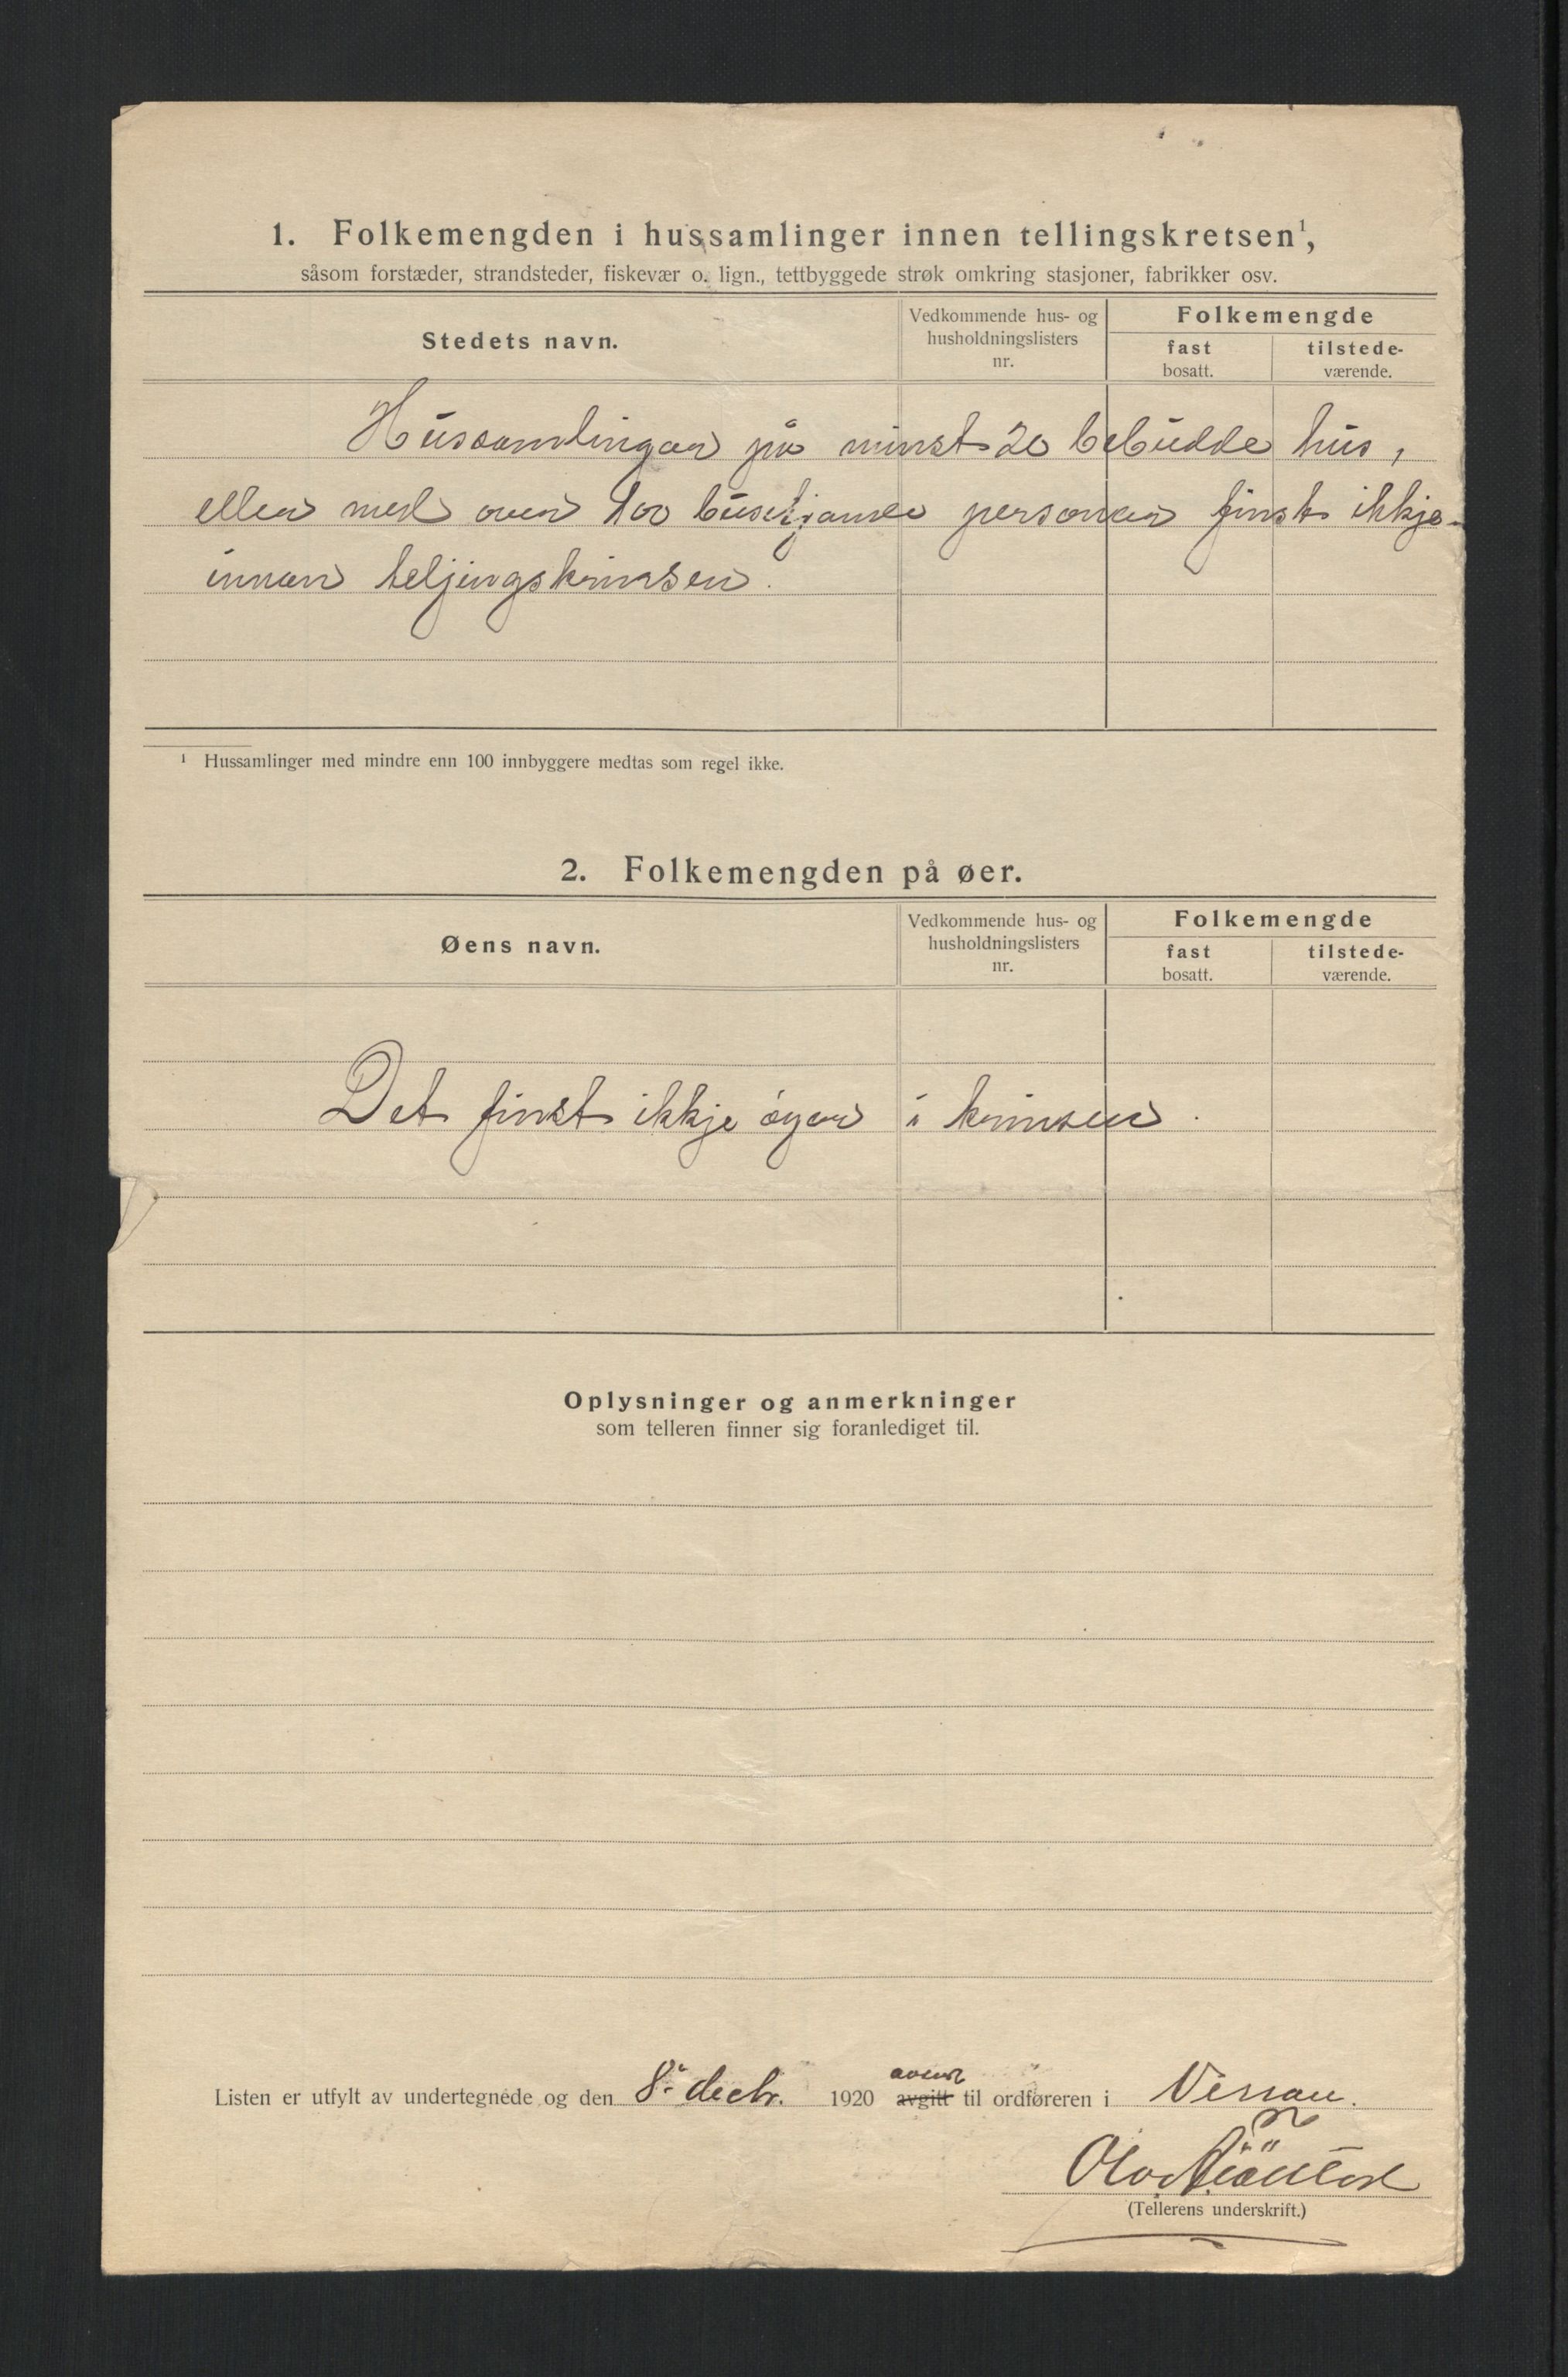 1. Folkemengden i hussamlinger innen tellingskretsen¹,
såsom forstæder, strandsteder, fiskevær o. lign., tettbyggede strøk omkring stasjoner, fabrikker osv.
Stedets navn.
Vedkommende hus- og
husholdningslisters
nr.
Folkemengde
fast
bosatt.
tilstede-
værende.
Hussamlingar på minst 20 bebudde hus,
eller med over 100 busitjande personer finst ikkje
innan teljingskrinsen.
¹ Hussamlinger med mindre enn 100 innbyggere medtas som regel ikke.
2. Folkemengden på øer.
Øens navn.
Vedkommende hus- og
husholdningslisters
nr.
Folkemengde
fast
bosatt.
tilstede-
værende.
Det finst ikkje øyar i krinsen.
Oplysninger og anmerkninger
som telleren finner sig foranlediget til.
avsendt
Listen er utfylt av undertegnede og den 8. decbr. 1920 avgitt til ordføreren i
Olav
(Tellerens underskrift.)